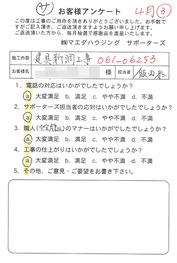 サ
4月③
お客様アンケート
この度は工事のご用命を頂きありがとうございました。お手数で
すがご記入頂き、ご返送頂きますようお願い申し上げます。
ご返送頂いた方から、毎月抽選で感謝品をお送り致します。
㈱マエダハウジング サポーターズ
施工内容 建具新調工事 061-06253
お名前 様 担当者 飯田
1. 電話の対応はいかがでしたでしょうか?
a. 大変満足 b. 満足 c. やや不満 d. 不満
2. サポーターズ担当者の応対はいかがでしたでしょうか?
a. 大変満足 b. 満足 c. やや不満 d. 不満
3. 職人( )のマナーはいかがでしたでしょうか?
a. 大変満足 b. 満足 c. やや不満 d. 不満
4. 工事の仕上がりはいかがでしたでしょうか?
a. 大変満足 b. 満足 c. やや不満 d. 不満
5. その他、ご意見・ご要望をお書き下さい。